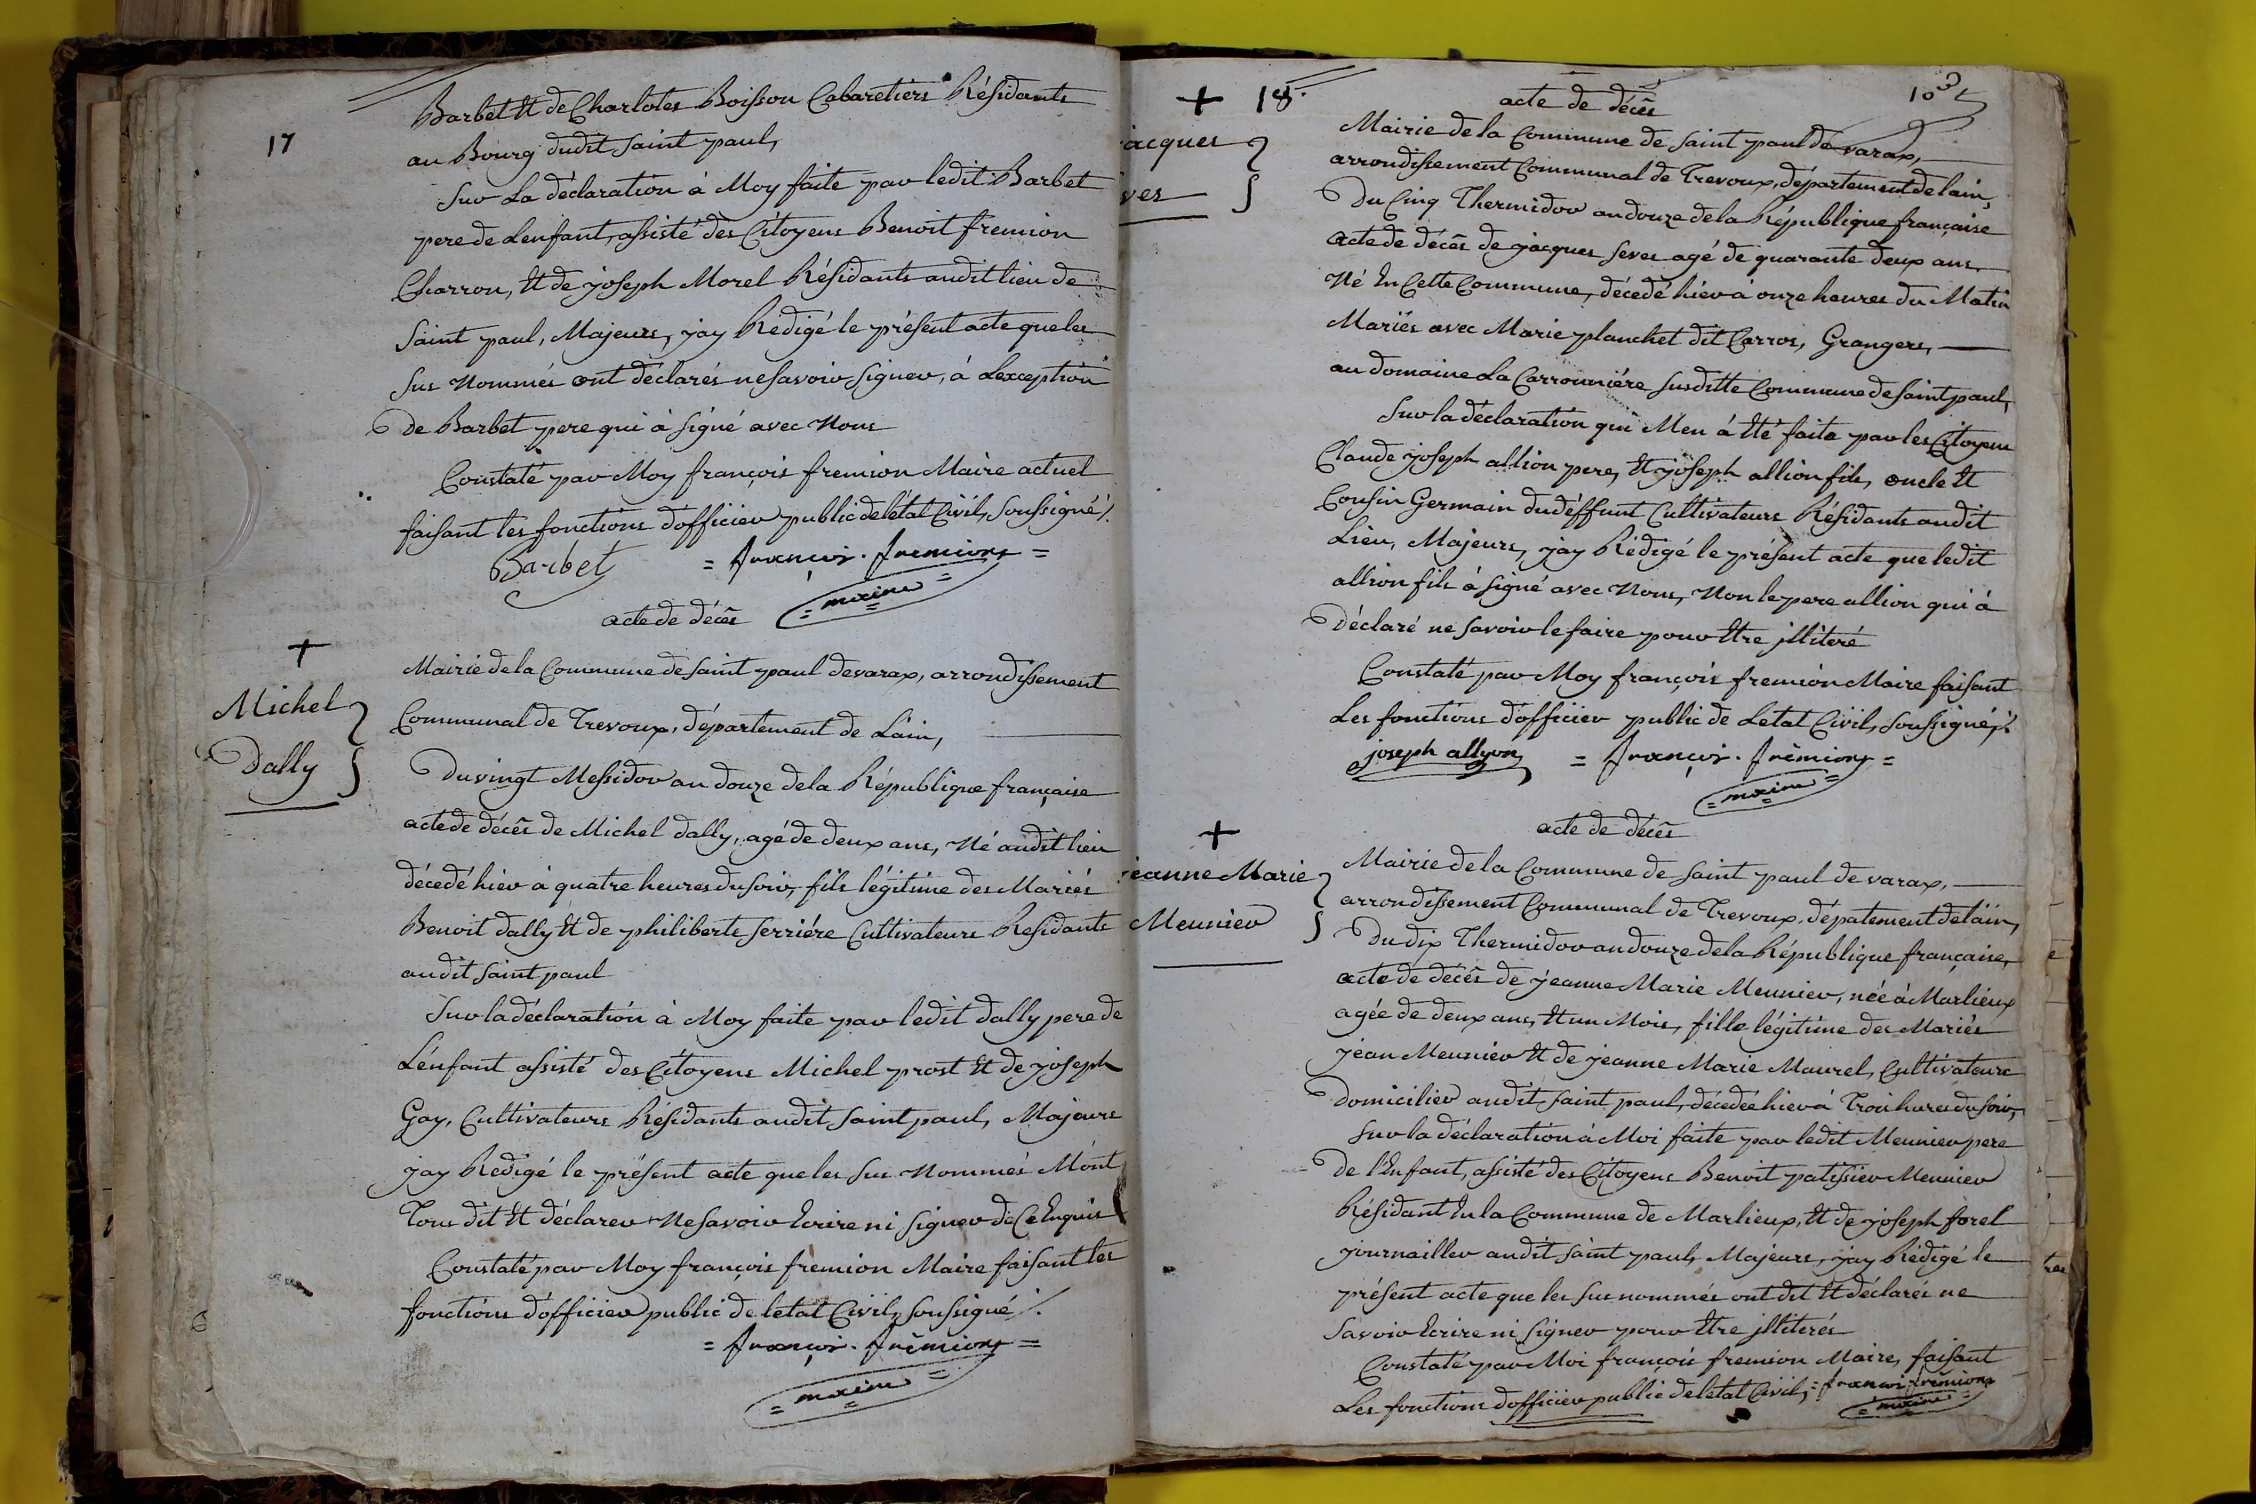 17
Barbet Et de Charlotes Boisson Cabaretiers Résidants
au Bourg dudit saint paul,
Sur La déclaration à Moy faite par ledit Barbet
pere de Lenfant, assisté des Citoyens Benoit fremion
Charron, Et de joseph Morel Résidants audit lieu de
saint paul, Majeurs, jay Rédigé le présent acte que les
sus Nommés ont déclarés ne savoir signer, à Lexception
De Barbet pere qui à signé avec Nous
Constaté par Moy françois fremion Maire actuel
faisant les fonctions d'officier public de létat Civil, soussigné ./.
Barbet = françois . fremion =
= maire =
acte de décès
+
Michel
Dally
Mairie de la Commune de saint paul de varax, arrondissement
Communal de Trevoux, département de Lain,
Du vingt Messidor an douze de la République française
acte de décès de Michel dally, agé de deux ans, Né audit lieu
décedé hier à quatre heures du soir, fils légitime des Mariés
Benoit dally Et de philiberte ferriére Cultivateurs Residants
audit saint paul
Sur la déclaration à Moy faite par ledit dally pere de
Lénfant assisté des Citoyens Michel prost Et de joseph
Gay, Cultivateurs Résidants audit saint paul, Majeurs
jay Redigé le présent acte que les sus Nommés M'ont
Tous dit Et déclarer Ne savoir Ecrire ni signer de Ce Enquis
Constaté par Moy françois fremion Maire faisant les
fonctions d'officier public de letat Civil, soussigné ./.
= françois . fremion =
= maire =
+ 18.
103
acques
ves
acte de décès
Mairie de la Commune de saint paul de varax,
arrondissement Communal de Trevoux, département de lain,
Du Cinq Thermidor an douze de la République française
acte de décès de jacques seves agé de quarante deux ans,
Né En Cette Commune, décedé hier à onze heures du Matin
Mariés avec Marie planchet dit Carros, Grangers,
au domaine La Carronniére susditte Commune de saint paul,
Sur la déclaration qui M'en à Eté faite par les Citoyens
Claude joseph allion pere, Et joseph allion fils, oncle Et
Cousin Germain du déffunt Cultivateurs Résidants audit
Lieu, Majeurs, jay Rédigé le présent acte que ledit
allion fils à signé avec Nous, Non le pere allion qui à
Déclaré ne savoir le faire pour Etre illiteré
Constaté par Moy françois fremion Maire faisant
Les fonctions d'officier public de Letat Civil, soussigné, ./.
joseph allyon = françois . fremion =
= maire =
+
jeanne Marie
Meunier
acte de décès
Mairie de la Commune de saint paul de varax,
arrondissement Communal de Trevoux, dépatement de lain,
Du dix Thermidor an douze de la République française,
acte de décès de jeanne Marie Meunier, née à Marlieux
agée de deux ans, Et un Mois, fille légitime des Mariés
jean Meunier Et de jeanne Marie Maurel, Cultivateurs
Domicilier audit saint paul, décedée hier à Trois hures du soir,
Sur la déclaration à Moi faite par ledit Meunier pere
De l'Enfant, assisté des Citoyens Benoit patissier Meunier
Résidant En la Commune de Marlieux, Et de joseph forel
journailler audit saint paul, Majeurs, jay Rédigé le
présent acte que les sus nommés ont dit Et déclarés ne
savoir Ecrire ni signer pour Etre illiterés
Constaté par Moi françois fremion Maire, faisant
Les fonctions d'officier public de letat Civil, = françois fremion
= maire =